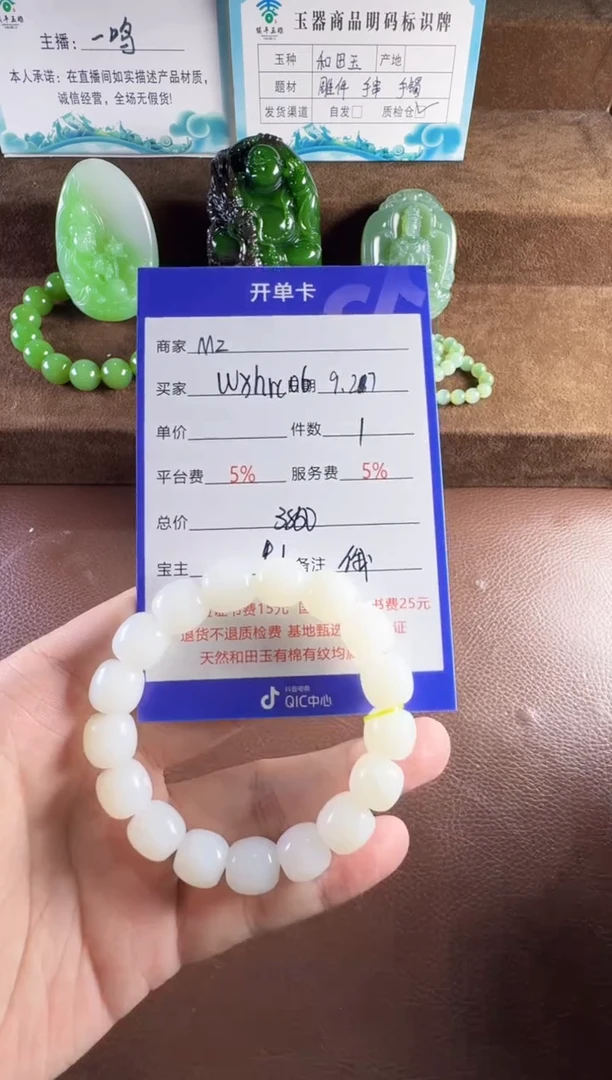 主播：一鸣
本人承诺：在直播间如实描述产品材质，
诚信经营，全场无假货！
玉器商品明码标识牌
玉种 和田玉 产地
题材 雕件 手串 手镯
发货渠道 自发□ 质检仓☑
开单卡
商家 MZ
买家 日期 9.
单价 件数 1
平台费 5% 服务费 5%
总价
宝主 备注 俄
证书费15元 国 书费25元
退货不退质检费 基地甄选 证
天然和田玉有棉有纹均
抖音电商
QIC中心